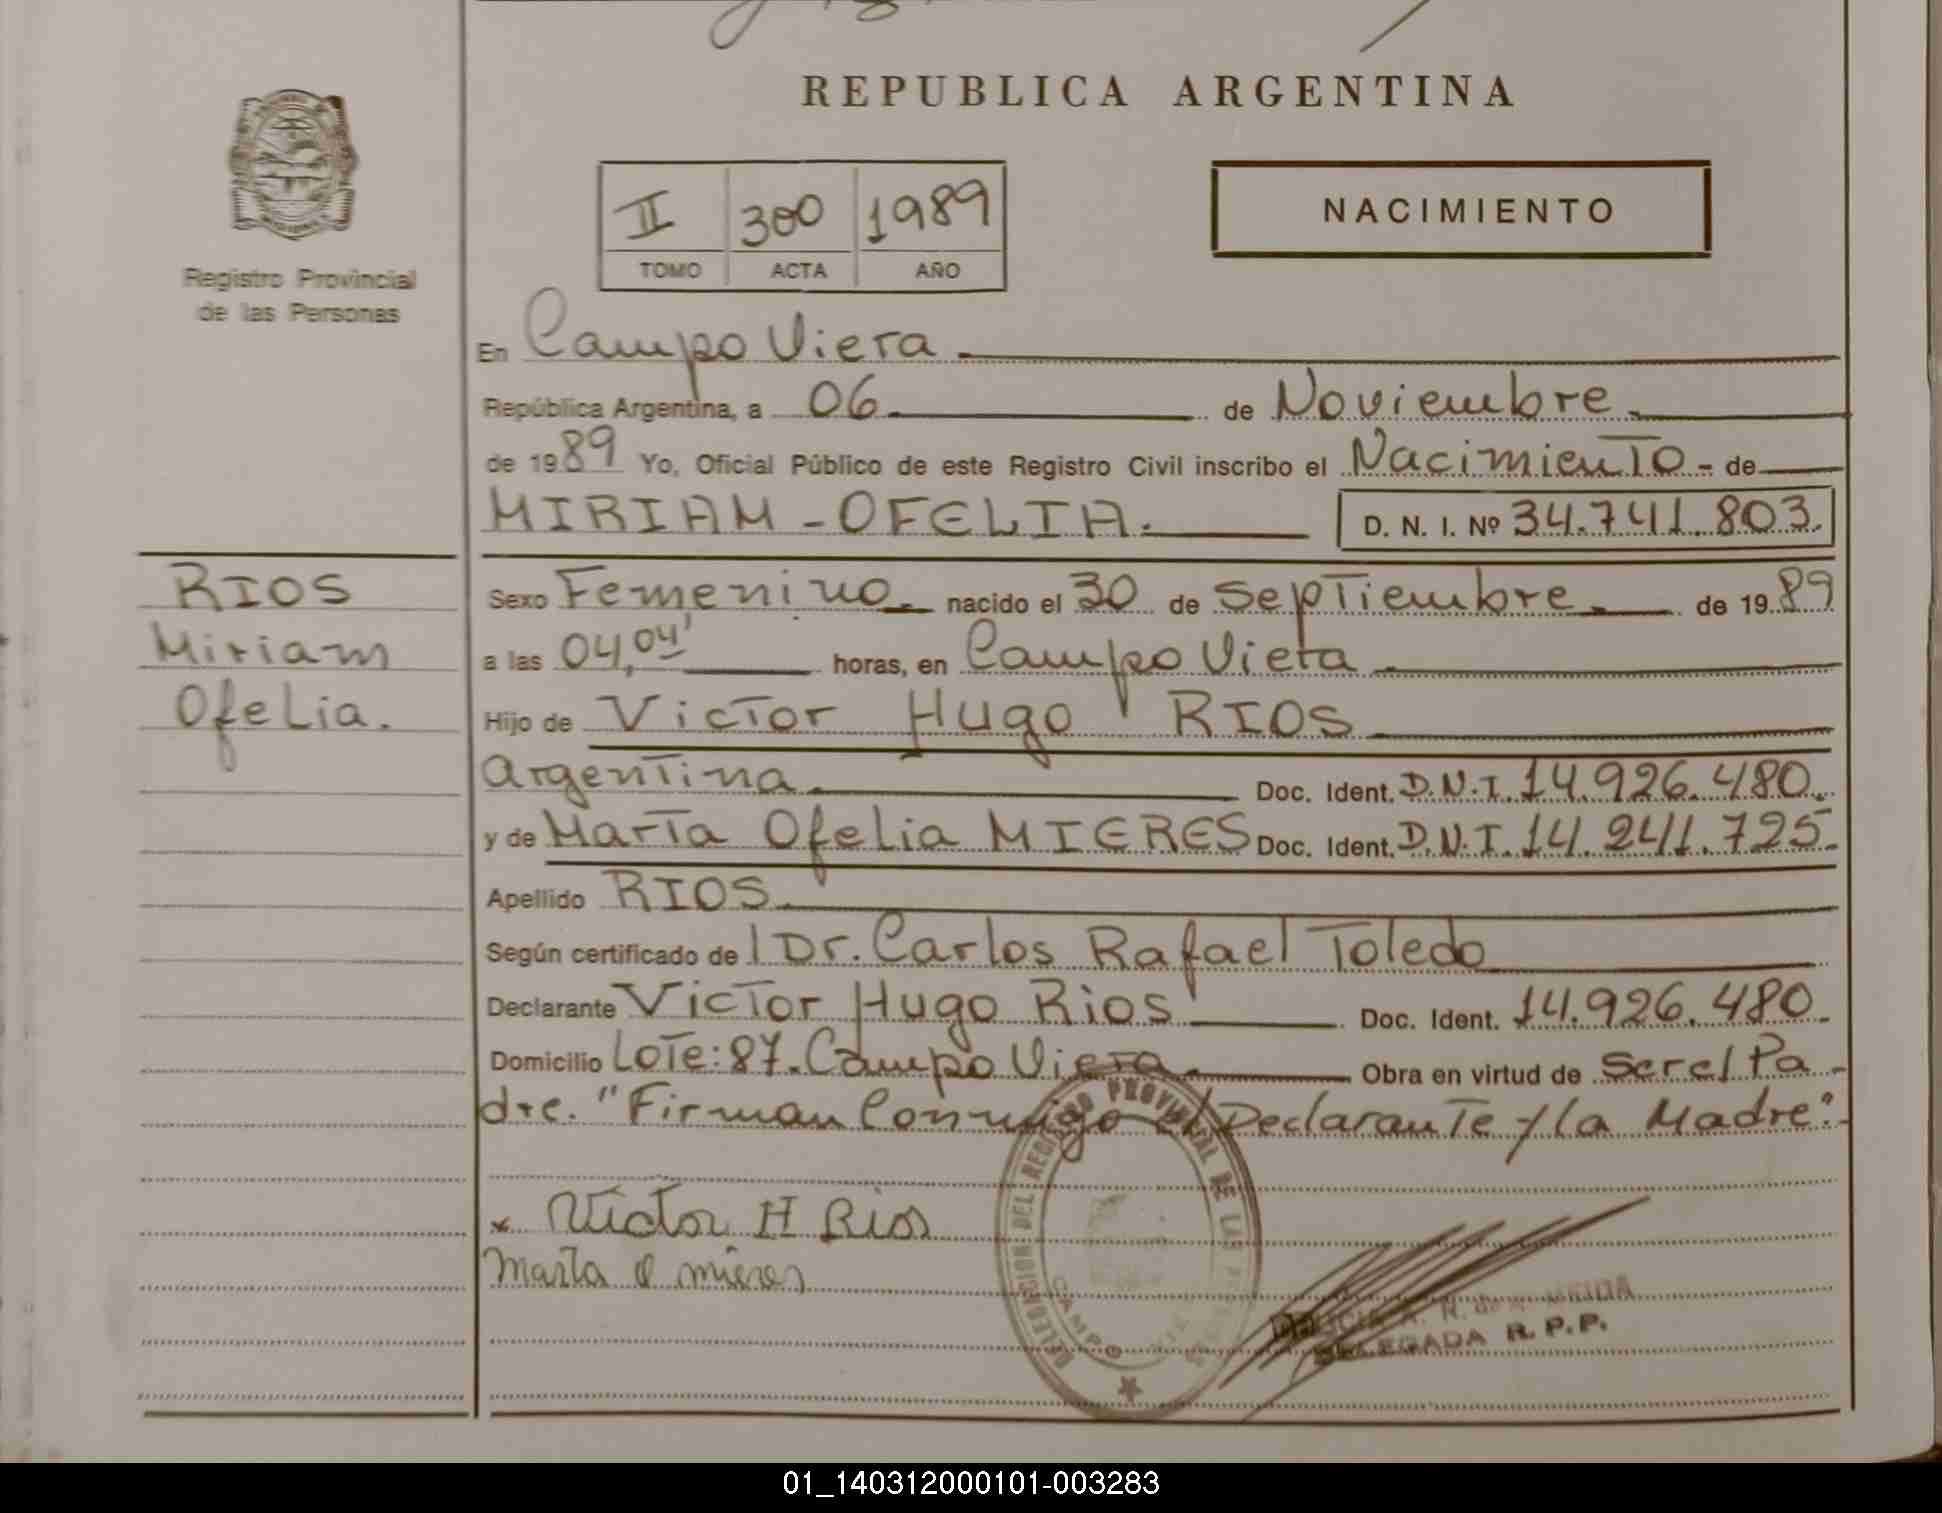 REPUBLICA ARGENTINA
II 300 1989
TOMO ACTA AÑO
NACIMIENTO
Registro Provincial
de las Personas
En Campo Viera
República Argentina, a 06 de Noviembre
de 1989 Yo, Oficial Público de este Registro Civil inscribo el Nacimiento - de
MIRIAM - OFELIA. D. N. I. Nº 34.741.803.
RIOS
Miriam
Ofelia.
Sexo Femenino. nacido el 30 de Septiembre. de 1989
a las 04,04' horas, en Campo Viera
Hijo de Victor Hugo RIOS
Argentina Doc. Ident. D.N.I. 14.926.480.
y de Marta Ofelia MIERES Doc. Ident. D.N.I. 14.241.725.
Apellido RIOS.
Según certificado de Dr. Carlos Rafael Toledo
Declarante Victor Hugo Rios Doc. Ident. 14.926.480.
Domicilio Lote: 87. Campo Viera. Obra en virtud de Ser el Pa-
dre. "Firman Conmigo el Declarante y la Madre".
x Victor H Rios
Marta O mieres
DELEGACION DEL REGISTRO PROVINCIAL DE LAS
CAMPO
DELEGADA R. P. P.
01_140312000101-003283